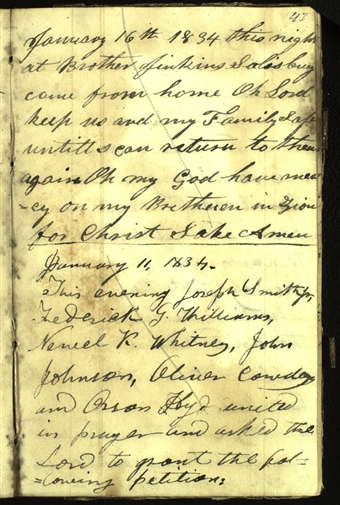 43
January 16th 1834 this night
at Brother Jinkins Salisbury
came from home Oh Lord
keep us and my Family safe
untill I can return to them
again Oh my God have mer
-cy on my Bretheren in Zion
for Christ Sake Amen
January 11, 1834.
This evening Joseph Smith Jr,
Frederick G. Williams,
Newel K. Whitney, John
Johnson, Oliver Cowdery
and Orson Hyde united
in prayer and asked the
Lord to grant the fol-
=lowing petition: